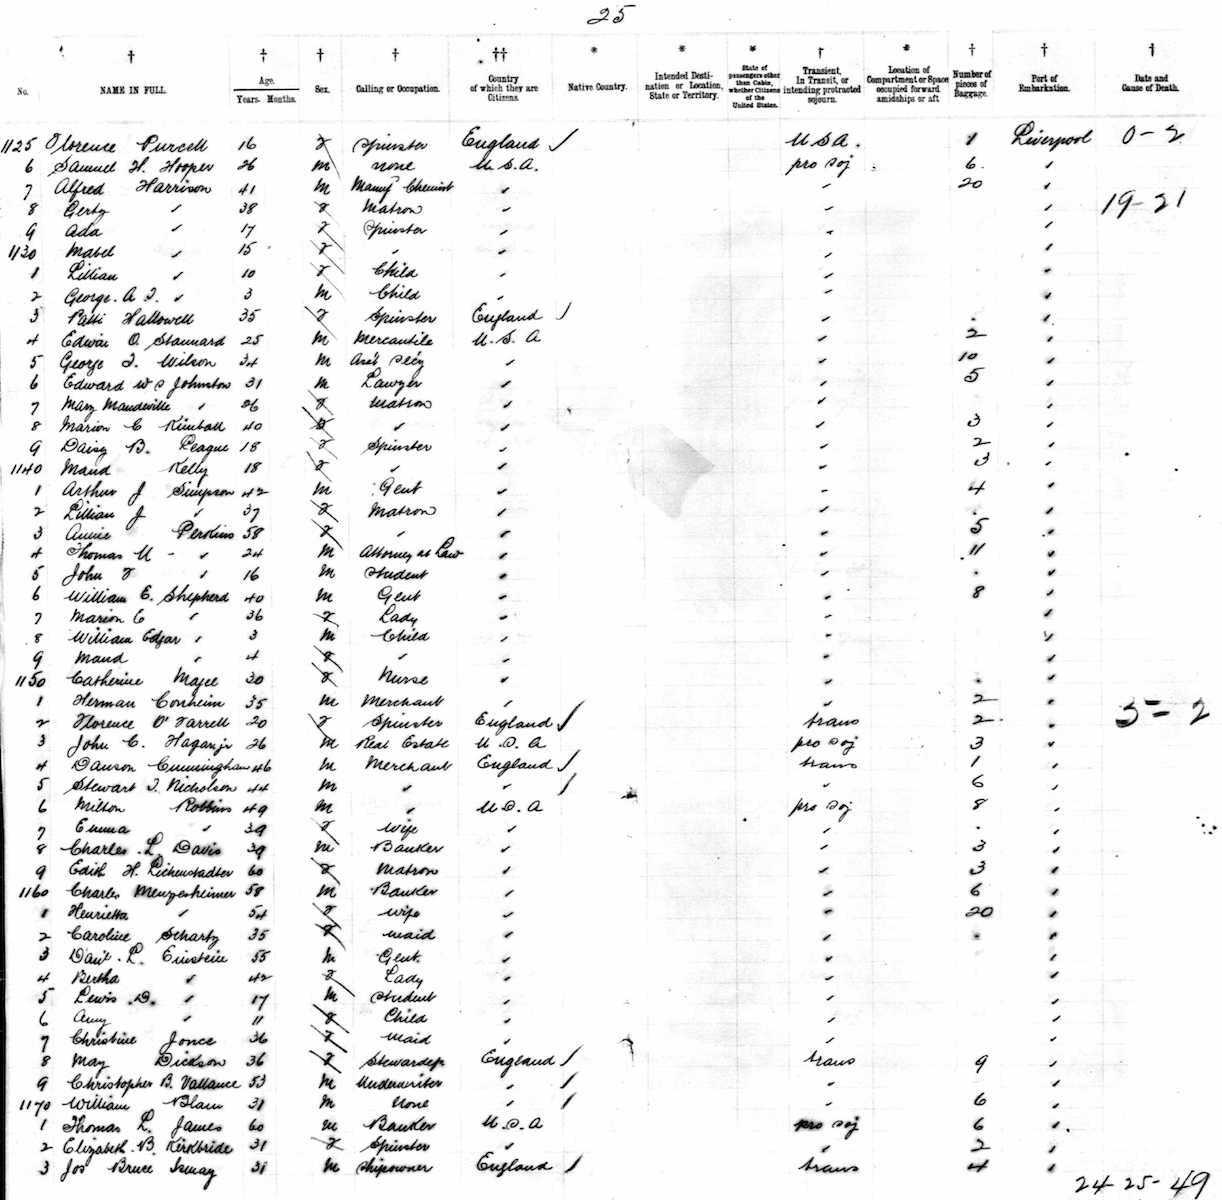 25
No. NAME IN FULL. Age. Years. Months. Sex. Calling or Occupation. Country of which they are Citizens. Native Country. Intended Destination or Location, State or Territory. State of passengers other than Cabin, whether Citizens of the United States. Transient, In Transit, or intending protracted sojourn. Location of Compartment or Space occupied forward amidships or aft. Number of pieces of Baggage. Port of Embarkation. Date and Cause of Death.
1125 Florence Purcell 16 F Spinster England / USA. 1 Liverpool 0-2
6 Samuel H. Hooper 26 M none U.S.A. pro soj 6 "
7 Alfred Harrison 41 M Manuf Chemist " " 20 "
8 Gerty " 38 F Matron " " " 19-21
9 Ada " 17 F Spinster " " "
1130 Mabel " 15 F " " " "
1 Lillian " 10 F Child " " "
2 George. A " 3 M Child " " "
3 Patti Hallowell 35 F Spinster England / " "
4 O Stannard 25 M Mercantile U.S.A " 2 "
5 George Wilson 34 M Ass't Sec'y " " 10 "
6 Edward Johnston 31 M Lawyer " " 5 "
7 Mary Mandeville " 26 F Matron " " "
8 Marion C Kimball 40 F " " " 3 "
9 Daisy B. 18 F Spinster " " 2 "
1140 Maud Kelly 18 F " " " 3 "
1 Arthur J Simpson 42 M Gent " " 4 "
2 Lillian J " 37 F Matron " " "
3 Annie Perkins 58 F " " " 5 "
4 Thomas " 24 M Attorney at Law " " 11 "
5 John F " 16 M Student " " "
6 William E. Shepherd 40 M Gent " " 8 "
7 Marion C " 36 F Lady " " "
8 William Edgar " 3 M Child " " "
9 Maud " 4 F " " " "
1150 Catherine Magee 30 F Nurse " " "
1 Herman 35 M Merchant " " 2 " 3=2
2 Florence O'Farrell 20 F Spinster England / trans 2 "
3 John C. Hagan jr 26 M Real Estate U.S.A pro soj 3 "
4 Dawson Cunningham 46 M Merchant England / trans 1 "
5 Stewart Nicholson 44 M " " / " 6 "
6 Milton Robbins 49 M " U.S.A pro soj 8 "
7 Emma " 39 F Wife " " "
8 Charles. L. Davis 39 M Banker " " 3 "
9 Edith H. Lichenstadter 60 F Matron " " 3 "
1160 Charles Menzesheimer 58 M Banker " " 6 "
1 Henrietta " 54 F Wife " " 20 "
2 Caroline 35 F Maid " " "
3 Dan'l. L. Einstein 55 M Gent. " " "
4 Bertha " 42 F Lady " " "
5 Lewis. D. " 17 M Student " " "
6 Amy " 11 F Child " " "
7 Christine Jonce 36 F Maid " " "
8 May Dickson 36 F Stewardess England / trans 9 "
9 Christopher B. Vallance 53 M Underwriter " / " "
1170 William Blain 31 M None " / " 6 "
1 Thomas L. James 60 M Banker U.S.A pro soj 6 "
2 Elizabeth. B. Kirkbride 31 F Spinster " " 2 "
3 Jos Bruce Ismay 31 M Shipowner England / trans 4 "
24-25-49